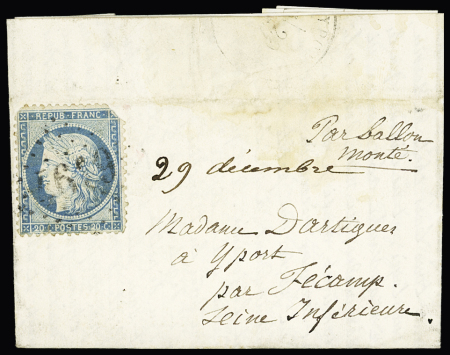 REPUB. FRANC.
20 C. POSTES 20 C.
Par ballon
monté.
29 décembre
Madame Dartigues
à Yport
par Fécamp.
Seine Inférieure.